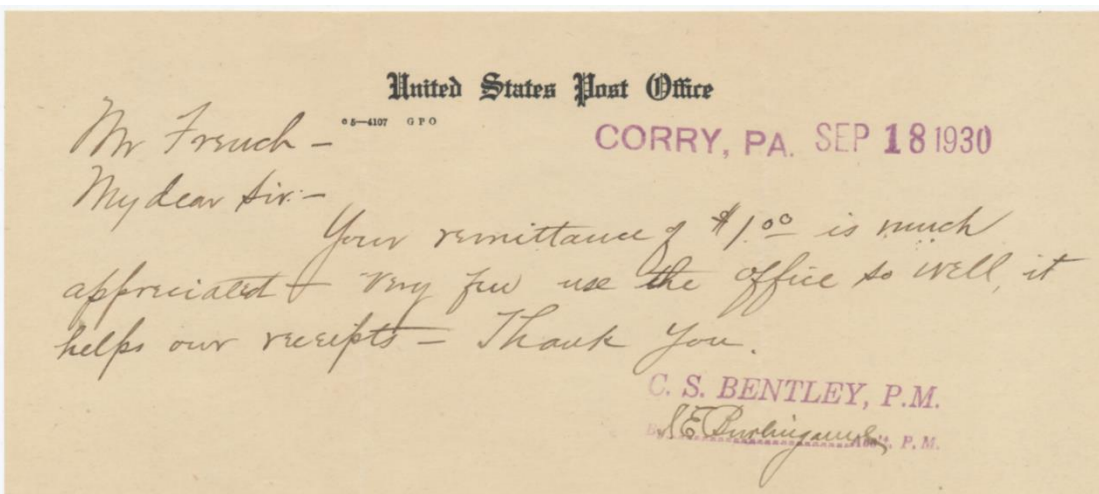 United States Post Office
o 5—4107 GPO
CORRY, PA. SEP 18 1930
Mr French –
My dear Sir:–
Your remittance of $1.00 is much
appreciated – Very few use the office so well, it
helps our receipts – Thank You.
C. S. BENTLEY, P.M.
By S E Burlingame Ass't. P. M.